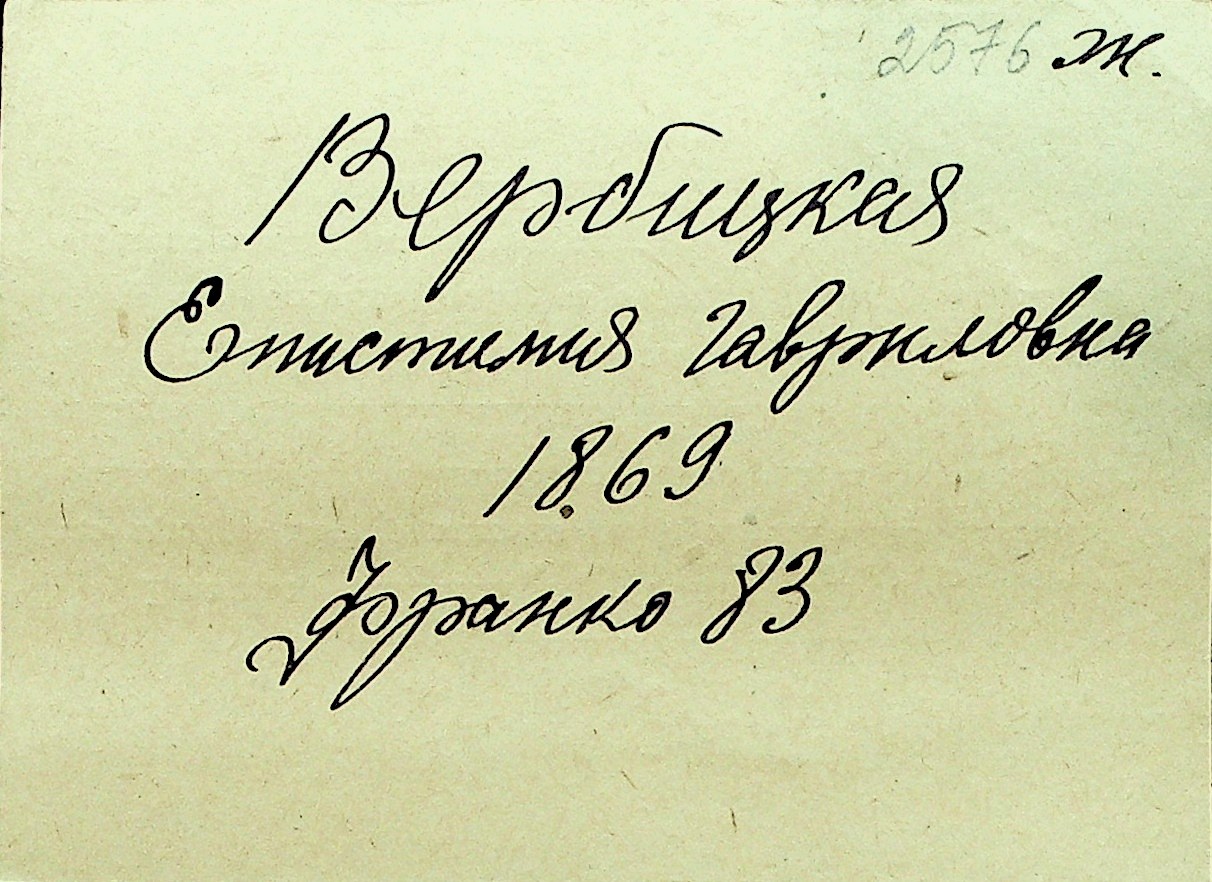 2576 ж.
Вербицкая
Епистимия Гавриловна
1869
Франко 83